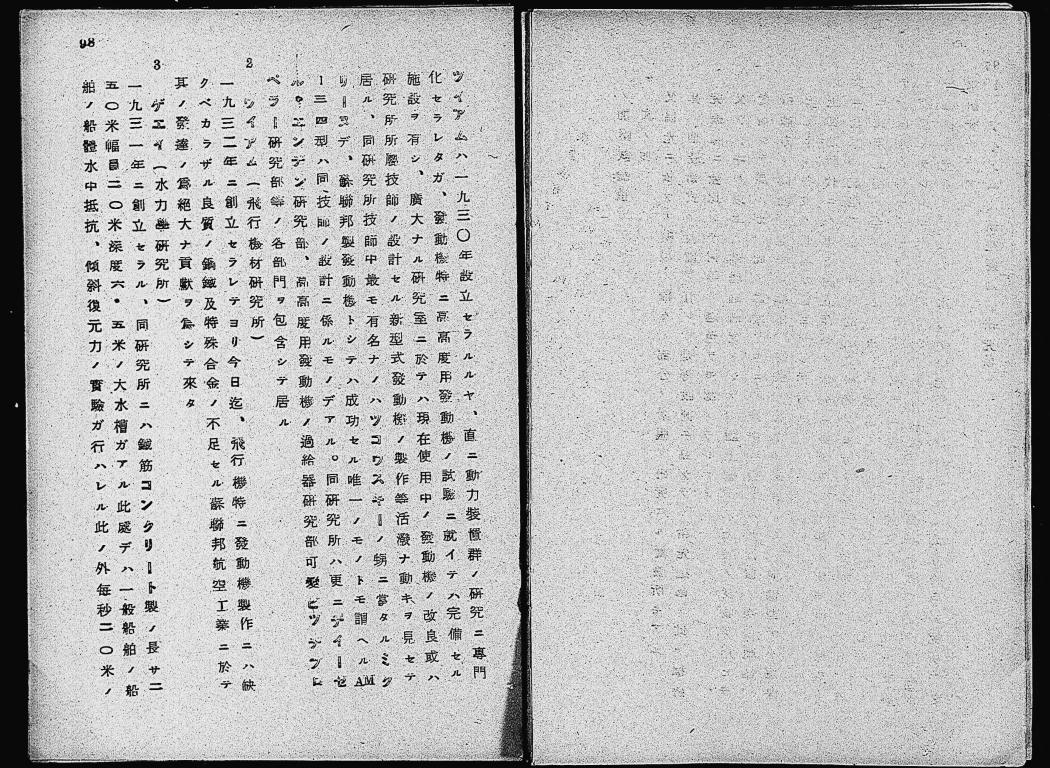 98
ツイアムハ一九三〇年設立セラルルヤ、直ニ動力裝置群ノ研究ニ專門
化セラレタガ、發動機特ニ高高度用發動機ノ試驗ニ就イテハ完備セル
施設ヲ有シ、廣大ナル研究室ニ於テハ現在使用中ノ發動機ノ改良或ハ
研究所所屬技師ノ設計セル新型式發動機ノ製作等活潑ナ動キヲ見セテ
居ル、同研究所技師中最モ有名ナノハツコウスキーノ甥ニ當タルミク
リーヌデ、蘇聯邦製發動機トシテハ成功セル唯一ノモノトモ謂ヘルAM
ー三四型ハ同技師ノ設計ニ係ルモノデアル。同研究所ハ更ニデイーゼ
ル・エンヂン研究部、高高度用發動機ノ過給器研究部可變ピツチプロ
ペラー研究部等ノ各部門ヲ包含シテ居ル
2 ウイアム(飛行機材研究所)
一九三二年ニ創立セラレテヨリ今日迄、飛行機特ニ發動機製作ニハ缺
クベカラザル良質ノ鋼鐵及特殊合金ノ不足セル蘇聯邦航空工業ニ於テ
其ノ發達ノ爲絕大ナ貢獻ヲ爲シテ來タ
3 ゲエイ(水力學研究所)
一九三一年ニ創立セラル、同研究所ニハ鐵筋コンクリート製ノ長サ二
五〇米幅員二〇米深度六・五米ノ大水槽ガアル此處デハ一般船舶ノ船
舶ノ船體水中抵抗、傾斜復元力ノ實驗ガ行ハレル此ノ外每秒二〇米ノ